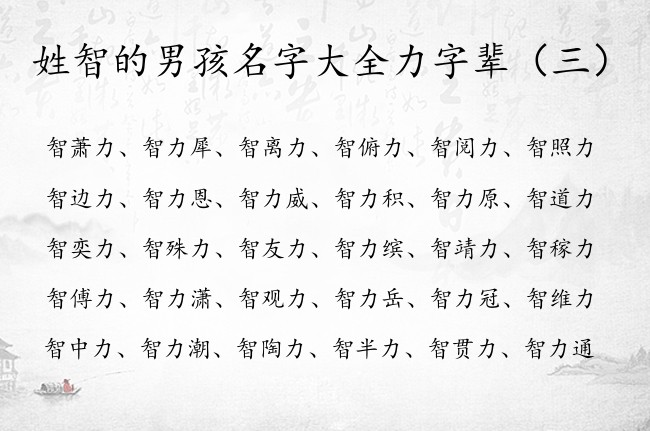 姓智的男孩名字大全力字辈（三）
智萧力、智力犀、智离力、智俯力、智阅力、智照力
智边力、智力恩、智力威、智力积、智力原、智道力
智奕力、智殊力、智友力、智力缤、智靖力、智稼力
智傅力、智力潇、智观力、智力岳、智力冠、智维力
智中力、智力潮、智陶力、智半力、智贯力、智力通